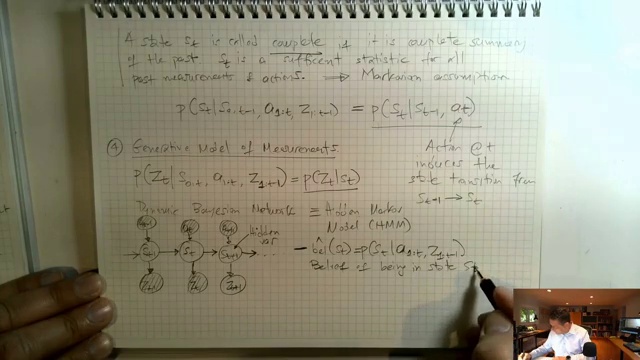 A state St is called complete if it is complete summary
of the past St is a sufficent statistic for all
past measurements & actions. ⟹ Markovian assumption
p(St|S0:t-1, a1:t, Z1:t-1) = p(St|St-1, at)
Action @t
induces the
state transition from
St-1 → St
④ Generative Model of Measurements
p(Zt|S0:t, a1:t, Z1:t-1) = p(Zt|St)
Dynamic Bayesian Network ≡ Hidden Markov
Model (HMM)
at-1 at at+1
hidden
var
St-1 → St → St+1 → ...
Zt-1 Zt Zt+1
– bel(St) = p(St|a1:t, Z1:t-1)
Belief of being in state St